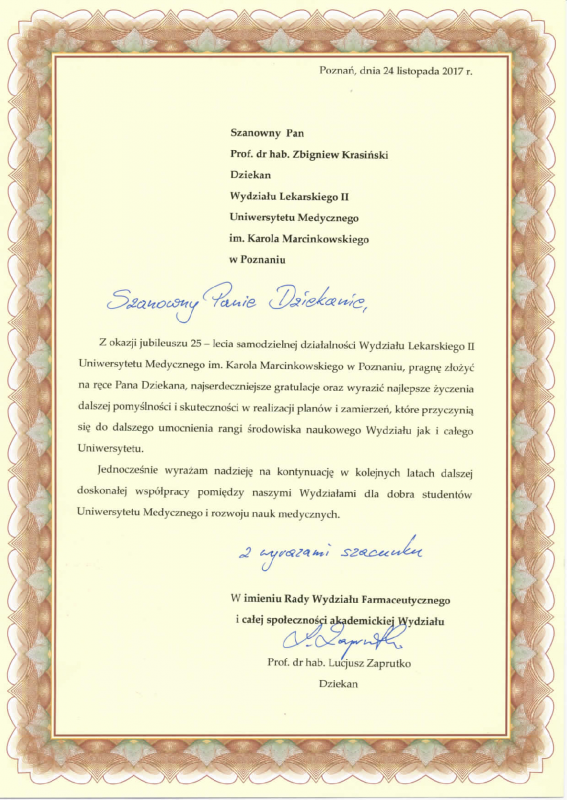 Poznań, dnia 24 listopada 2017 r.
Szanowny Pan
Prof. dr hab. Zbigniew Krasiński
Dziekan
Wydziału Lekarskiego II
Uniwersytetu Medycznego
im. Karola Marcinkowskiego
w Poznaniu
Szanowny Panie Dziekanie,
Z okazji jubileuszu 25 – lecia samodzielnej działalności Wydziału Lekarskiego II
Uniwersytetu Medycznego im. Karola Marcinkowskiego w Poznaniu, pragnę złożyć
na ręce Pana Dziekana, najserdeczniejsze gratulacje oraz wyrazić najlepsze życzenia
dalszej pomyślności i skuteczności w realizacji planów i zamierzeń, które przyczynią
się do dalszego umocnienia rangi środowiska naukowego Wydziału jak i całego
Uniwersytetu.
Jednocześnie wyrażam nadzieję na kontynuację w kolejnych latach dalszej
doskonałej współpracy pomiędzy naszymi Wydziałami dla dobra studentów
Uniwersytetu Medycznego i rozwoju nauk medycznych.
z wyrazami szacunku
W imieniu Rady Wydziału Farmaceutycznego
i całej społeczności akademickiej Wydziału
L. Zaprutko
Prof. dr hab. Lucjusz Zaprutko
Dziekan